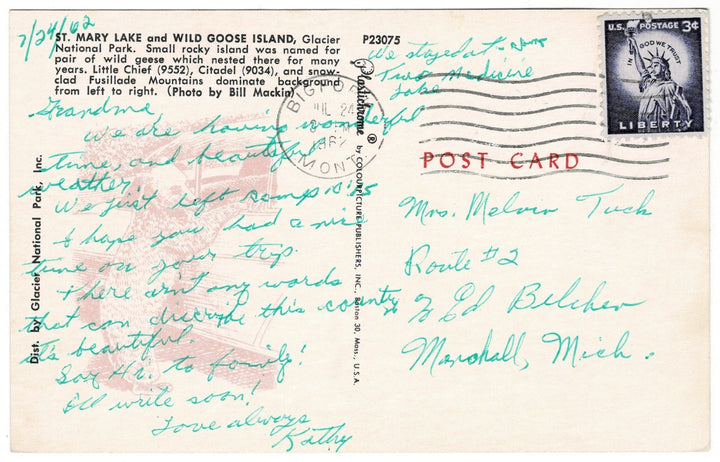 7/24/62
ST. MARY LAKE and WILD GOOSE ISLAND, Glacier
National Park. Small rocky island was named for
pair of wild geese which nested there for many
years. Little Chief (9552), Citadel (9034), and snow-
clad Fusillade Mountains dominate background
from left to right. (Photo by Bill Mackin)
Grandma,
We are having wonderful
time, and beautiful
weather!
We just left camp
I hope you had a nice
time on your trip.
There isn't any words
that can discribe this country
it's beautiful.
Say Hi. to family!
I'll write soon!
Love always
Kathy
Dist. by Glacier National Park, Inc.
P23075
Plastichrome ® by COLOURPICTURE PUBLISHERS, INC., Boston 30, Mass., U.S.A.
We stayed at
Two Medicine
Lake
JUL 24
1962
MONT.
U.S. POSTAGE 3¢
IN GOD WE TRUST
LIBERTY
POST CARD
Mrs. Melvin Tuck
Route #2
% Ed Belcher
Marshall, Mich.